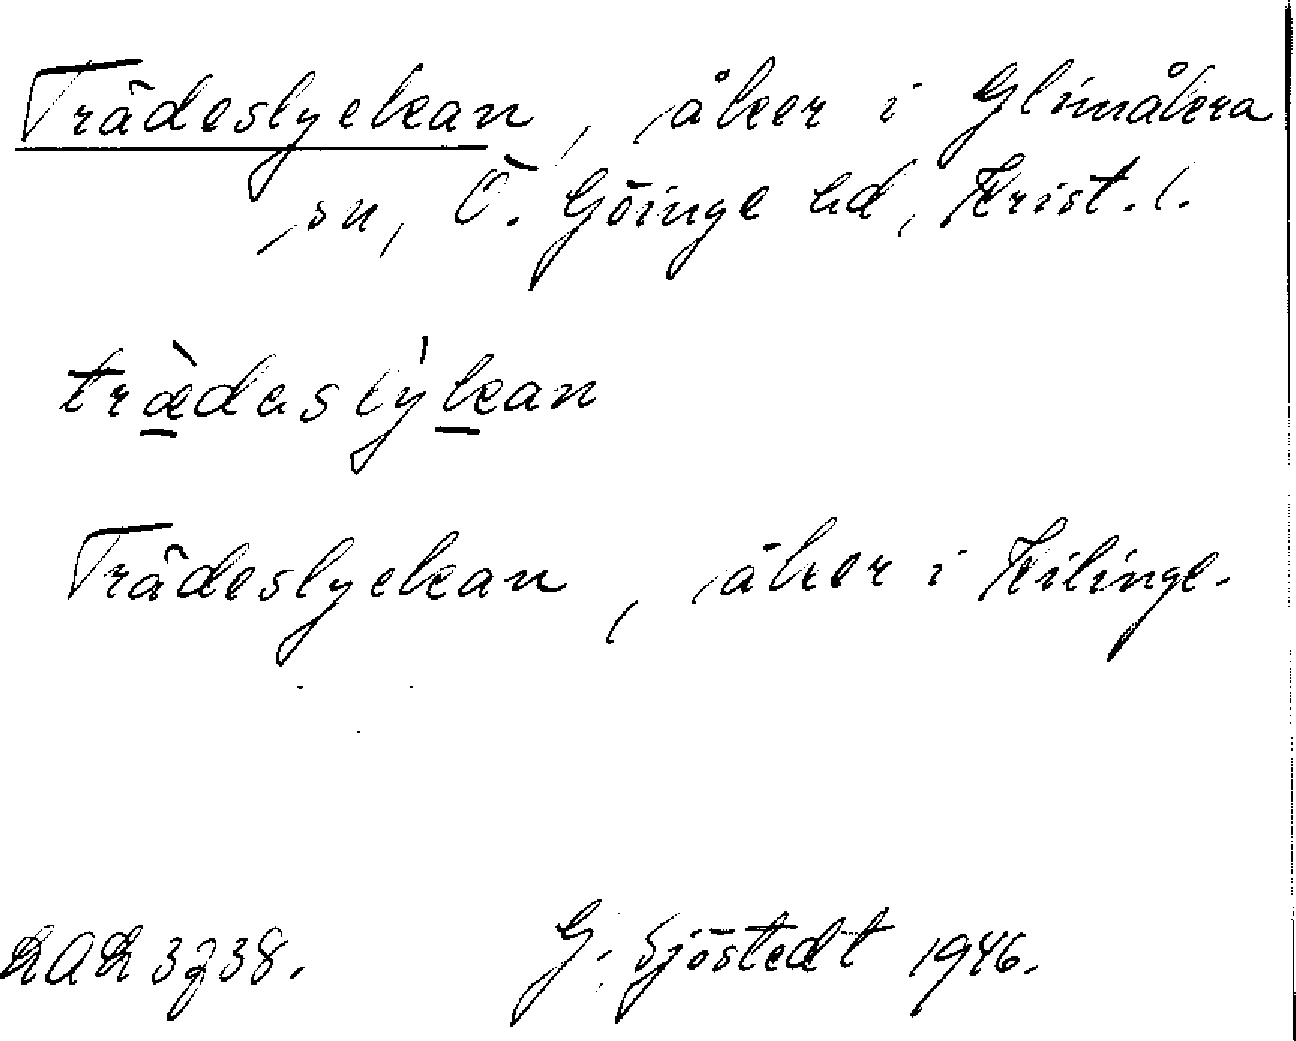 Trädeslyckan, åker i Glimåkra
sn, Ö. Göinge hd, Krist. l.
trædaslýkan
Trädeslyckan, åker i Kilinge.
LAL 3738. G. Sjöstedt 1946.